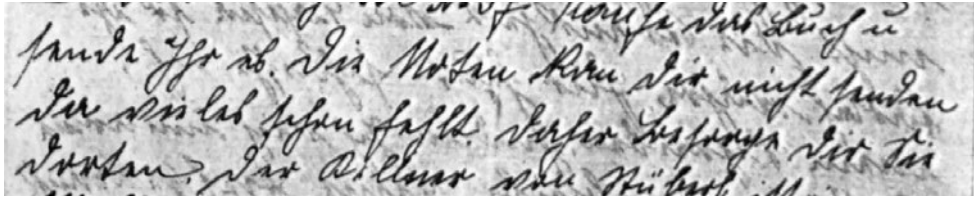 kaufe das Buch u
sende Ihr es. Die Noten kan dir nicht senden
da vieles schon fehlt. Daher besorge dir Sie
dorten. Der Kellner von Stüberl ist